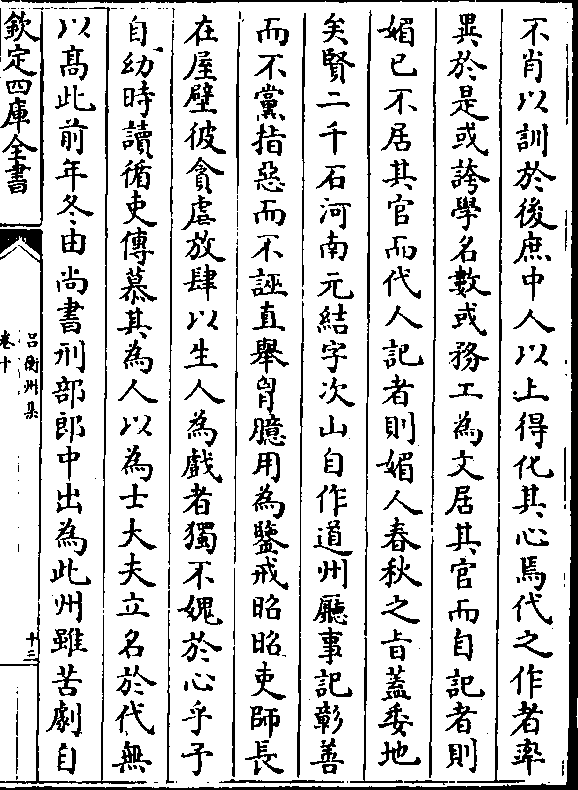 不肖以訓於後庶中人以上得化其心焉代之作者率
異於是或誇學名數或務工為文居其官而自記者則
媚已不居其官而代人記者則媚人春秋之旨蓋委地
矣賢二千石河南元結字次山自作道州廳事記彰善
而不黨指惡而不誣直舉胷臆用為鑒戒昭昭吏師長
在屋壁彼貪虐放肆以生人為戲者獨不媿於心乎予
自幼時讀循吏傳慕其為人以為士大夫立名於代無
以髙此前年冬由尚書刑部郎中出為此州雖苦劇自
欽定四庫全書
呂衡州集
卷十
十三